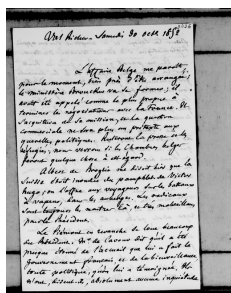 Val Richer - Samedi 30 Oct. 1852
L'affaire Belge me paraît
pour le moment, bien près d'être arrangée.
Le ministère Brouckère va se former; il
avait été appelé comme le plus propre à
terminer la négociation avec la France. Il
s'acquittera de sa mission, et la question
commerciale ne sera plus un prétexte aux
querelles politiques.
nous verrons si la Chambre belge
fera quelque chose à cet égard.
Albert de Broglie me disait hier que la
Suisse était inondée du pamphlet de Victor
Hugo; on l'offre aux voyageurs sur les bateaux
à vapeur, dans les auberges. Les radicaux
sont toujours là
pour le Président.
Le Piémont en revanche se loue beaucoup
du Président. M. de Cavour dit qu'il a été
presque étonné de l'accueil que lui a fait le
gouvernement français et de la bienveillance
toute politique, qu'on lui a témoignée.
aucune inquiétude